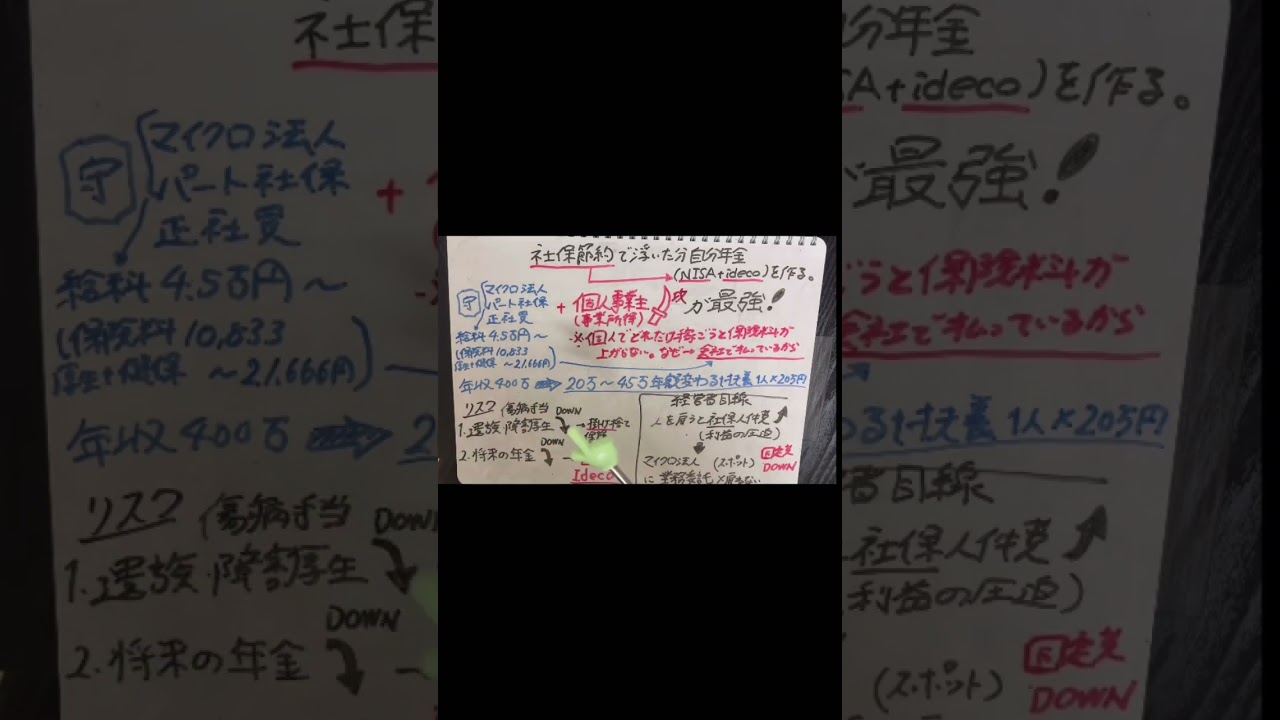 社保節約で浮いた分自分年金
(NISA+ideco)を作る。
守 マイクロ法人
パート社保
正社員
+ 個人事業主
(事業所得)
攻 が最強!
給料4.5万円〜
(保険料10,833
厚生+健保 〜21.666円)
※個人でどれだけ稼ごうと保険料が
上がらない。なぜ→会社で払っているから
年収400万 ⇒ 20万〜45万年観変わる扶養1人×20万円
リスク 傷病手当 DOWN
1.遺族・障害厚生 → 掛け捨て
保険
2.将来の年金 DOWN →
Ideco
経営者目線
人を雇うと社保人件費
(利益の圧迫)
マイクロ法人 (スポット) 固定費
DOWN
に業務委託×雇わない